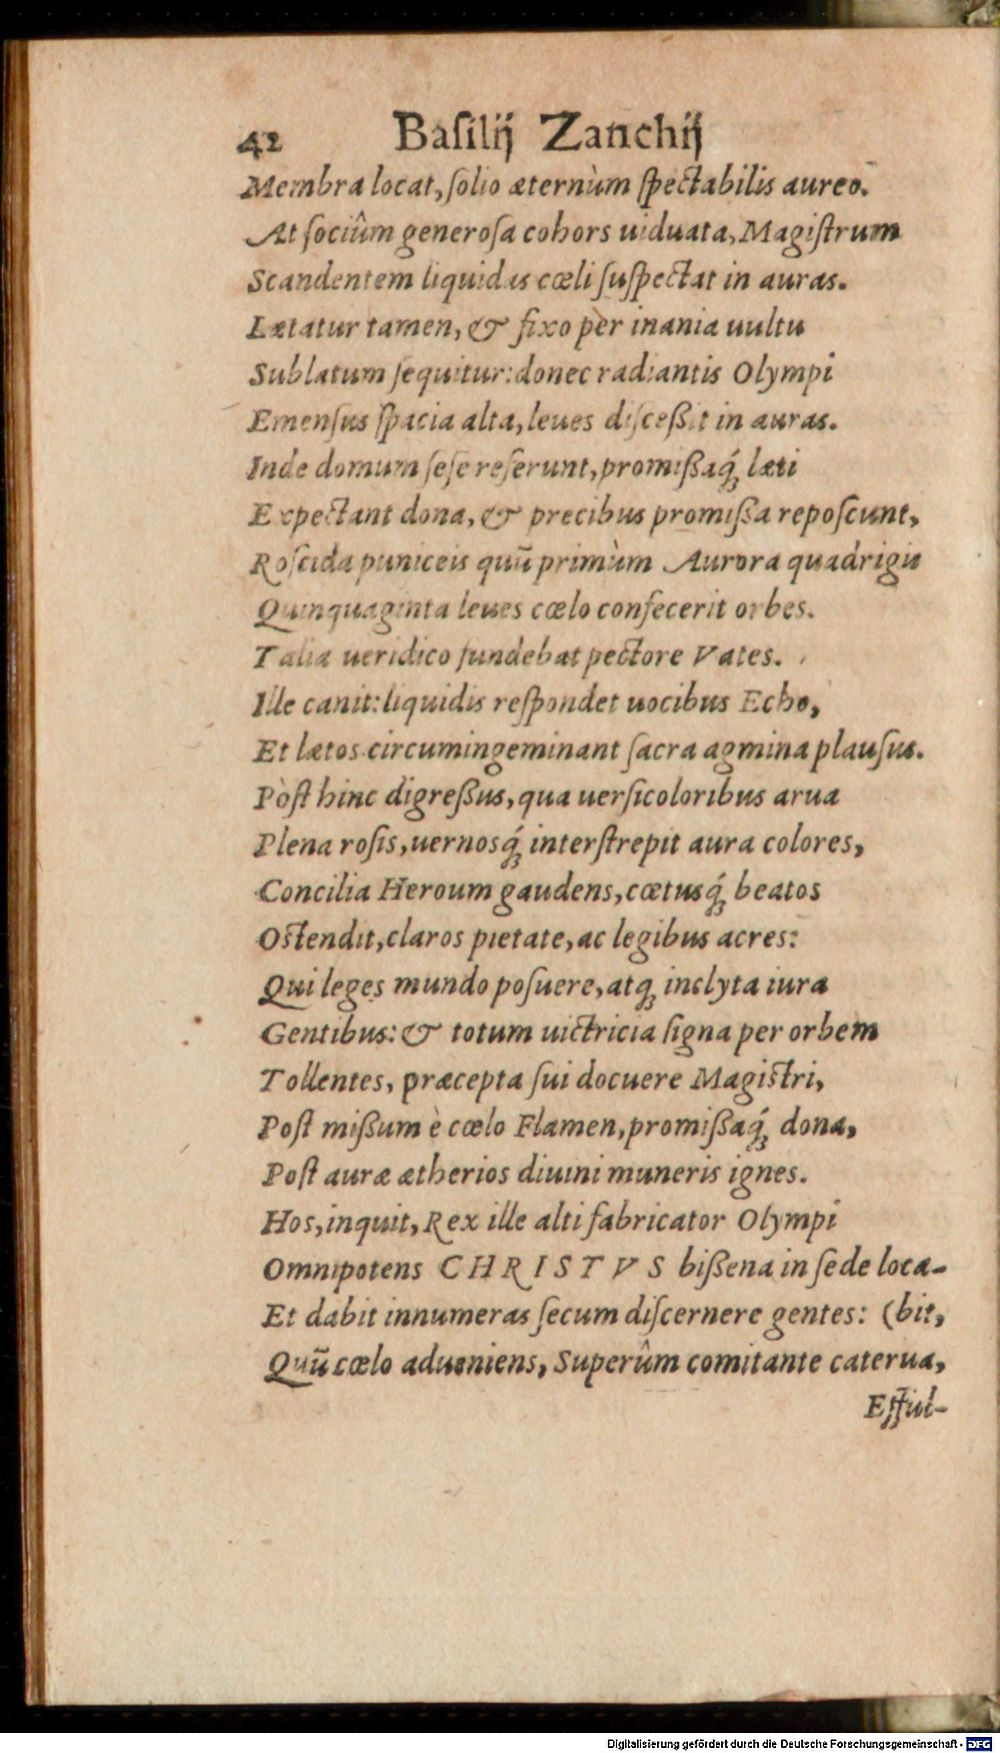 42 Baſilij Zanchij
Membra locat, ſolio æternùm ſpectabilis aureo.
At ſociûm generoſa cohors uiduata, Magiſtrum
Scandentem liquidas cœli ſuſpectat in auras.
Lætatur tamen, & fixo per inania uultu
Sublatum ſequitur: donec radiantis Olympi
Emenſus ſpacia alta, leues diſceßit in auras.
Inde domum ſeſe referunt, promißaq́ꝫ læti
Expectant dona, & precibus promißa repoſcunt,
Roſcida puniceis quū primùm Aurora quadrigis
Quinquaginta leues cœlo confecerit orbes.
Talia ueridico fundebat pectore Vates.
Ille canit: liquidis reſpondet uocibus Echo,
Et lætos circumingeminant ſacra agmina plauſus.
Pòſt hinc digreßus, qua uerſicoloribus arua
Plena roſis, uernosq́ꝫ interſtrepit aura colores,
Concilia Heroum gaudens, cœtusq́ꝫ beatos
Oſtendit, claros pietate, ac legibus acres:
Qui leges mundo poſuere, atqꝫ inclyta iura
Gentibus: & totum uictricia ſigna per orbem
Tollentes, præcepta ſui docuere Magiſtri,
Poſt mißum è cœlo Flamen, promißaq́ꝫ dona,
Poſt auræ ætherios diuini muneris ignes.
Hos, inquit, Rex ille alti fabricator Olympi
Omnipotens CHRISTVS bißena in ſede loca-
Et dabit innumeras ſecum diſcernere gentes: (bit,
Quū cœlo adueniens, Superûm comitante caterua,
Efful-
Digitalisierung gefördert durch die Deutsche Forschungsgemeinschaft - DFG